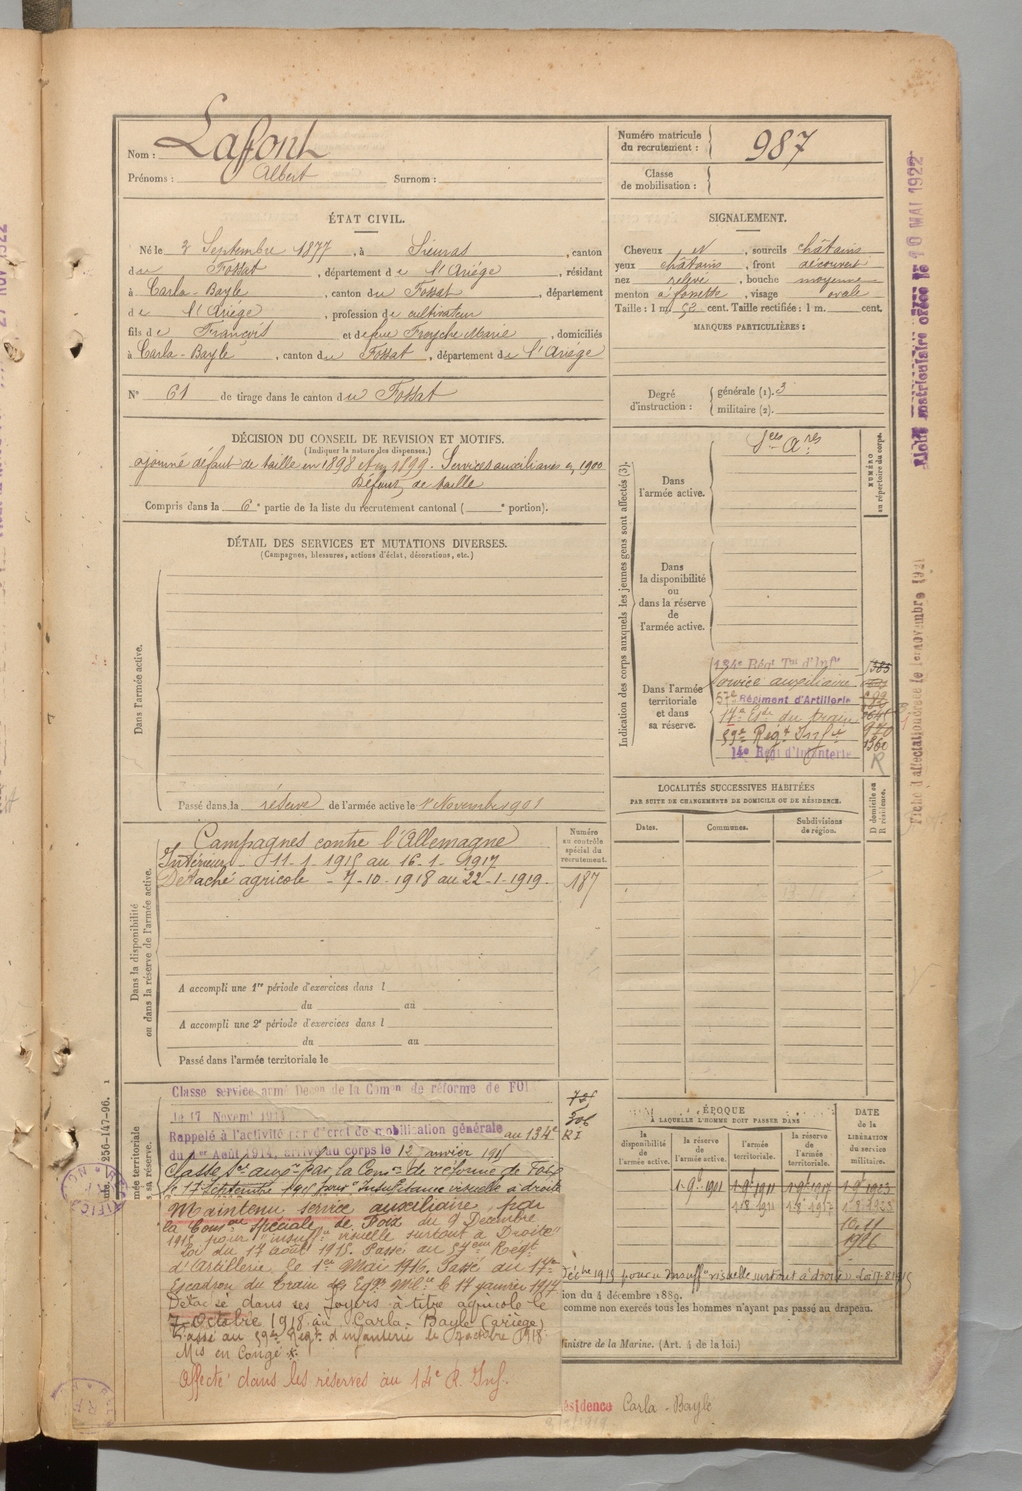 Nom : Lafont
Prénoms : Albert Surnom :
Numéro matricule du recrutement : 987
Classe de mobilisation :
ÉTAT CIVIL.
Né le 2 Septembre 1877, à Sieuras, canton
du Fossat, département de l'Ariège, résidant
à Carla-Bayle, canton du Fossat, département
de l'Ariège, profession de cultivateur
fils de François et de feue Froyche Marie, domiciliés
à Carla-Bayle, canton du Fossat, département de l'Ariège
N° 61 de tirage dans le canton du Fossat
SIGNALEMENT.
Cheveux N, sourcils châtains
yeux châtains, front découvert
nez relevé, bouche moyenne
menton à fossette, visage ovale
Taille : 1 m. 52 cent. Taille rectifiée : 1 m. cent.
MARQUES PARTICULIÈRES :
Degré d'instruction : générale (1). 3
militaire (2).
DÉCISION DU CONSEIL DE REVISION ET MOTIFS.
(Indiquer la nature des dispenses.)
ajourné défaut de taille en 1898 et en 1899. Services auxiliaires en 1900
Défaut de taille
Compris dans la 6e partie de la liste du recrutement cantonal ( e portion).
DÉTAIL DES SERVICES ET MUTATIONS DIVERSES.
(Campagnes, blessures, actions d'éclat, décorations, etc.)
Dans l'armée active.
Passé dans la réserve de l'armée active le 1er Novembre 1901
Indication des corps auxquels les jeunes gens sont affectés (3).
NUMÉRO au répertoire du corps.
Sces Ares
Dans l'armée active.
Dans la disponibilité ou dans la réserve de l'armée active.
Dans l'armée territoriale et dans sa réserve.
134e Régt Tal d'Infie
Service auxiliaire
57e Régiment d'Artillerie
17e Esde du train
59e Régt Infie
14e Régt d'Infanterie
1360
R
LOCALITÉS SUCCESSIVES HABITÉES
PAR SUITE DE CHANGEMENTS DE DOMICILE OU DE RÉSIDENCE.
Dates. Communes. Subdivisions de région. D domicile ou R résidence.
Dans la disponibilité ou dans la réserve de l'armée active.
Campagnes contre l'Allemagne
Intérieur - 11-1-1915 au 16-1-1917
Détaché agricole - 7-10-1918 au 22-1-1919.
Numéro au contrôle spécial du recrutement.
187
A accompli une 1re période d'exercices dans l
du au
A accompli une 2e période d'exercices dans l
du au
Passé dans l'armée territoriale le
Classe service armé Décon de la Comon de réforme de FOI
le 17 Novemt 1914
Rappelé à l'activité par décret de mobilisation générale au 134e
du 1er Août 1914, arrivé au corps le 12 janvier 1915 RI
Classé Sce auxre par la Comon de réforme de Foix
le 17 Septembre 1915 pour "Insuffisance visuelle à droite
Maintenu service auxiliaire par
la Comon Spéciale de Foix du 9 Décembre
1915 pour "insuffce visuelle surtout à Droite"
Loi du 17 août 1915. Passé au 57eme Régt
d'Artillerie le 1er Mai 1916. Passé au 17e
Escadron du Train des Eqges Mlre le 17 janvier 1917
Détaché dans ses foyers à titre agricole le
7 Octobre 1918 à Carla-Bayle (Ariège)
Passé au 59e Régt d'infanterie le 7 octobre 1918.
Mis en Congé
Affecté dans les réserves au 14e R. Inf.
ÉPOQUE
À LAQUELLE L'HOMME DOIT PASSER DANS
la disponibilité de l'armée active. la réserve de l'armée active. l'armée territoriale. la réserve de l'armée territoriale.
DATE de la LIBÉRATION du service militaire.
1-9bre 1901 1-9bre 1911 1-9bre 1917 1-9bre 1923
Déchre 1915 pour "Insuffce visuelle surtout à droite" Loi 17-8-1915
ion du 4 décembre 1889.
comme non exercés tous les hommes n'ayant pas passé au drapeau.
Ministre de la Marine. (Art. 4 de la loi.)
ésidence Carla-Bayle
256-147-96.
Fiche matriculaire créée le 16 MAI 1922
Fiche d'affectation créée le 1er novembre 1921
27 NOV 1922